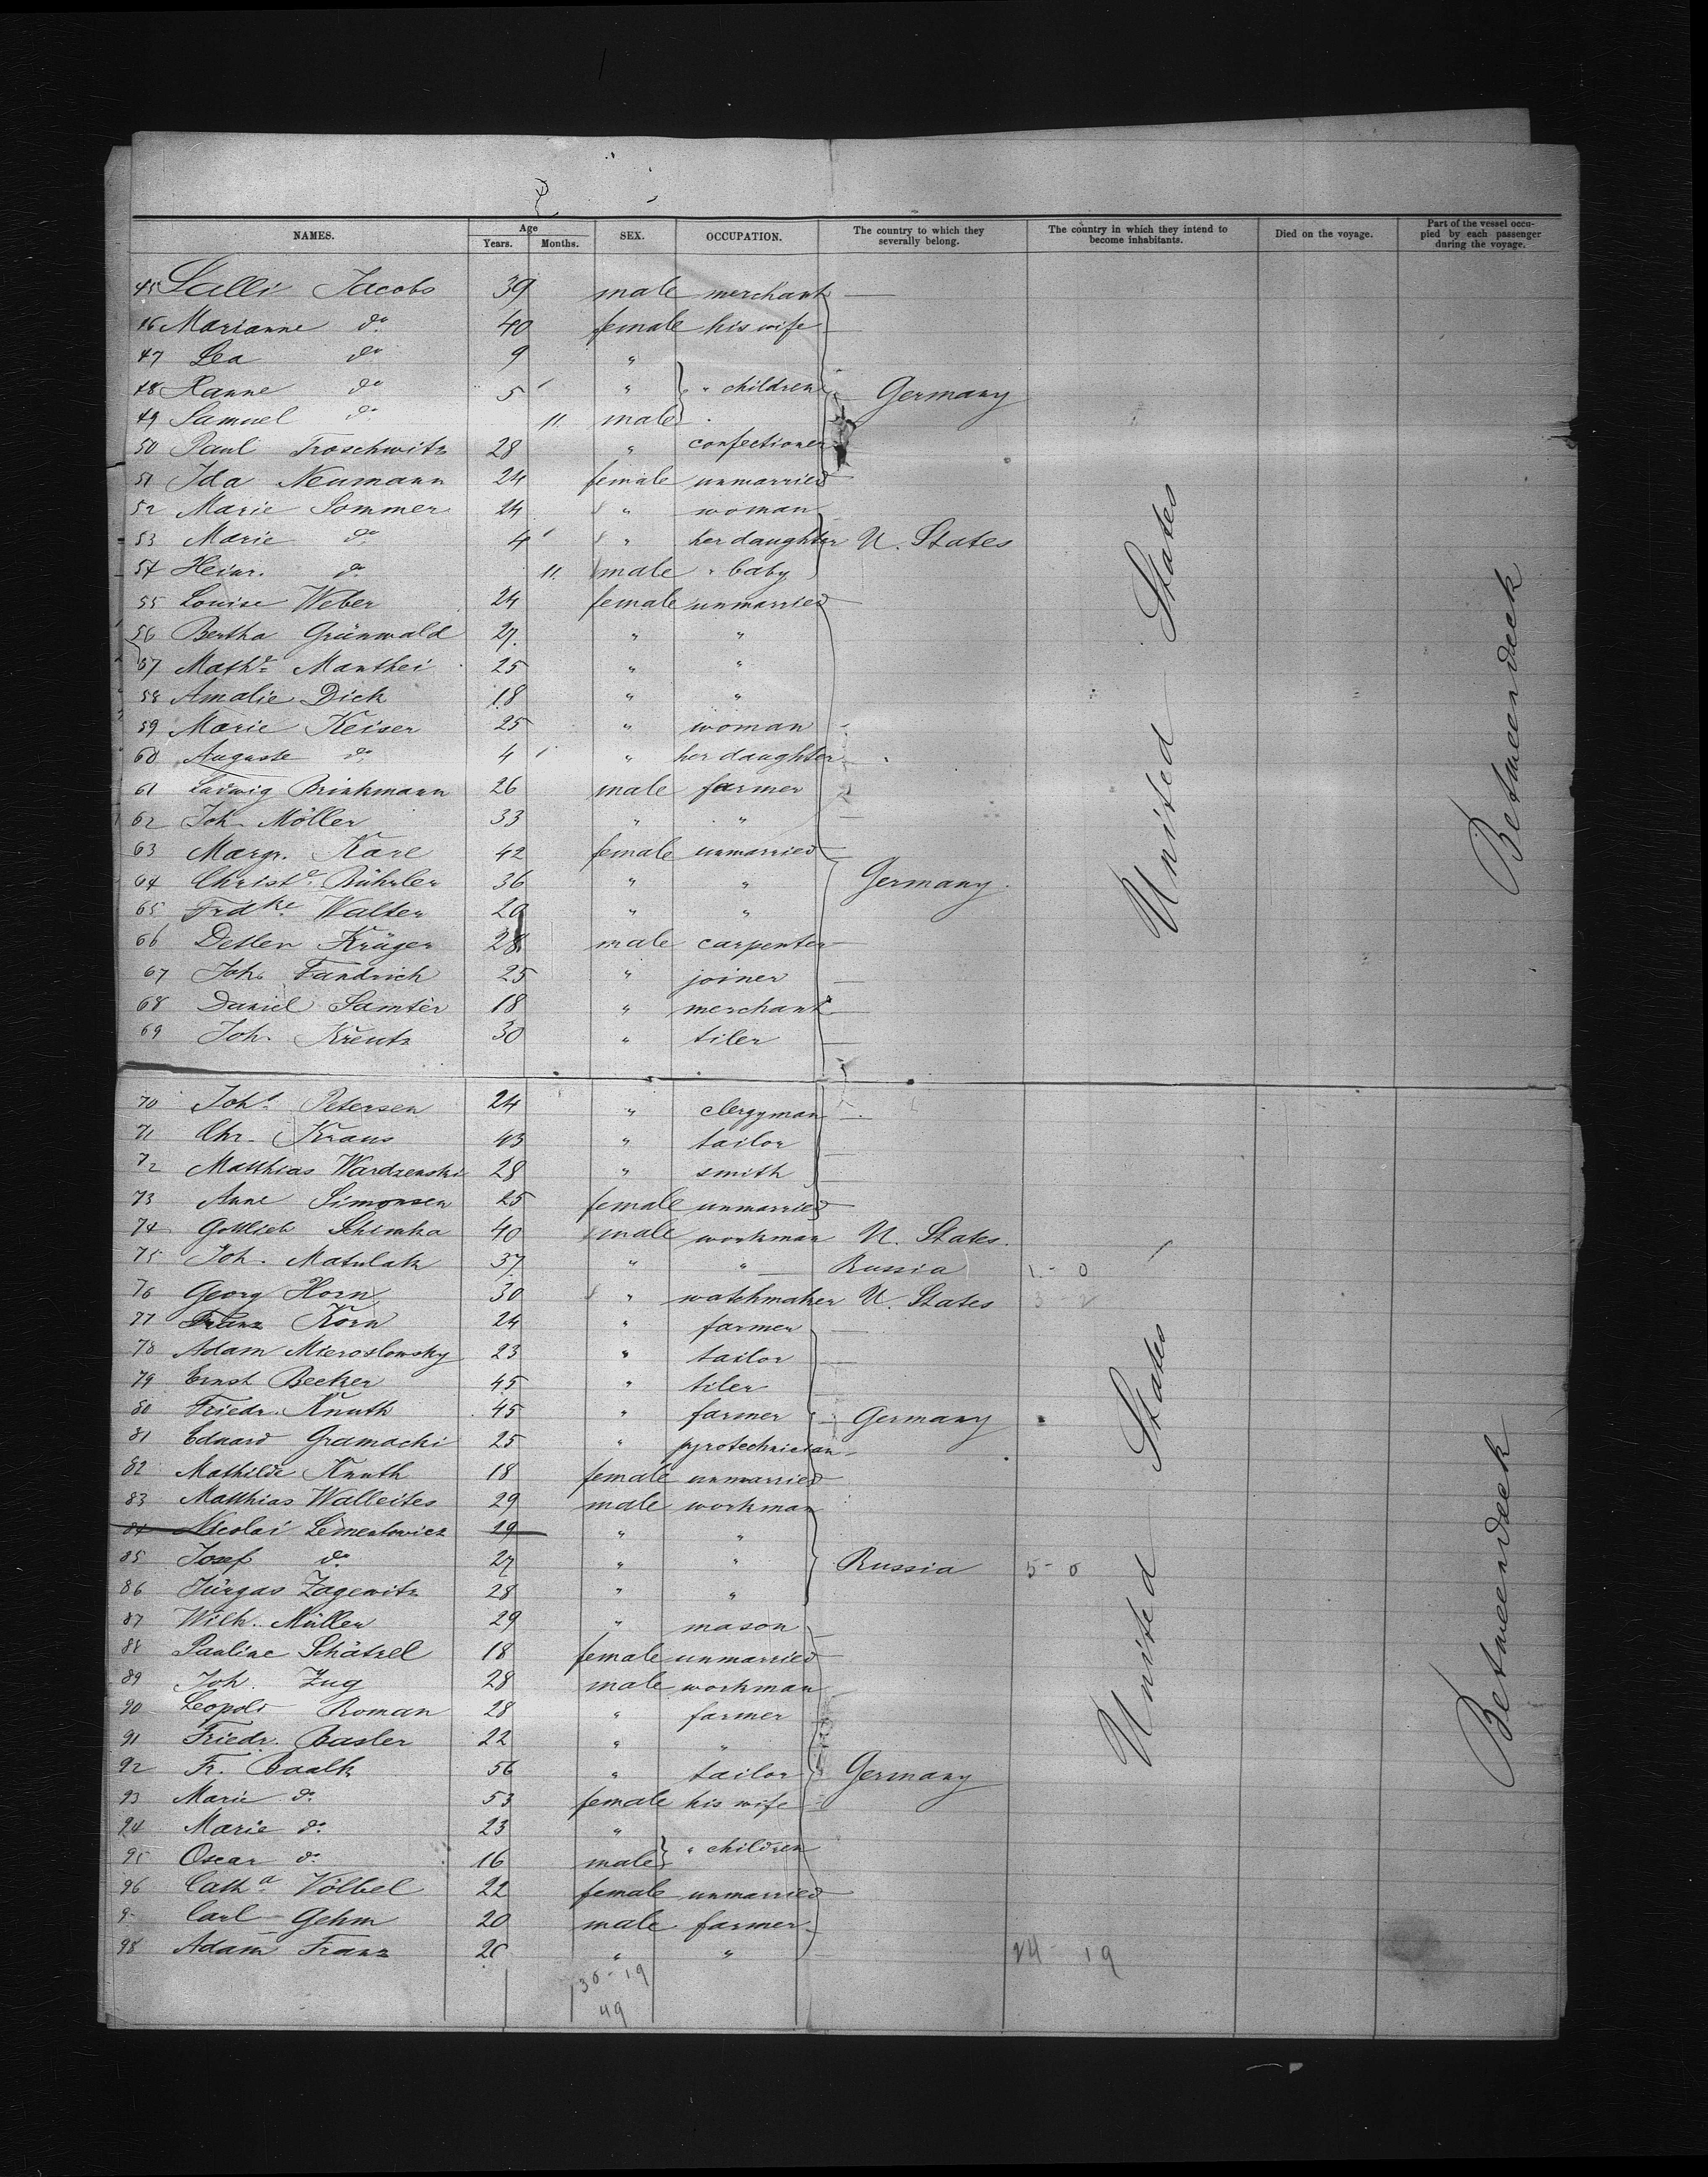 NAMES. Age Years. Months. SEX. OCCUPATION. The country to which they severally belong. The country in which they intend to become inhabitants. Died on the voyage. Part of the vessel occupied by each passenger during the voyage.
45 Salli Jacobs 39 male merchant
46 Marianne do 40 female his wife
47 Lea do 9 "
48 Hanne do 5 " " children Germany
49 Samuel do 11. male
50 Paul Troschwitz 28 " confectioner
51 Ida Neumann 24 female unmarried
52 Marie Sommer 24 " woman
53 Marie do 4 " her daughter U. States
54 Heinr. do 11. male " baby
55 Louise Weber 24 female unmarried
56 Bertha Grünwald 27. " "
57 Mathe Manthei 25 " "
58 Amalie Dick 18 " "
59 Marie Keiser 25 " woman
60 Auguste do 4 " her daughter
61 Ludwig Brinkmann 26 male farmer
62 Joh. Möller 33 " "
63 Margr. Karl 42 female unmarried
64 Christe Bührler 36 " " Germany.
65 Frdke Walter 20 " "
66 Detlev Krüger 28 male carpenter
67 Joh. Fandrich 25 " joiner
68 Daniel Samter 18 " merchant
69 Joh. Kreutz 30 " tiler
United States
Between deck
70 Johs Petersen 24 " clergyman
71 Chr. Kraus 43 " tailor
72 Matthias Wardzenski 28 " smith
73 Anne Simonsen 25 female unmarried
74 Gottlieb Schimka 40 male workman U. States.
75 Joh. Matulatz 37. " " Russia 1 - 0
76 Georg Horn 30 " watchmaker U. States 3 - 2
77 Franz Korn 24 " farmer
78 Adam Mieroslowsky 23 " tailor
79 Ernst Becker 45 " tiler
80 Friedr. Knuth 45 " farmer Germany
81 Eduard Gramacki 25 " pyrotechnician
82 Mathilde Knuth 18 female unmarried
83 Matthias Walleites 29 male workman
84 Nicolai Limentowicz 29 " "
85 Josef do 27 " " Russia 5 - 0
86 Jürgas Zagewitz 28 " "
87 Wilh. Müller 29 " mason
88 Pauline Schätzel 18 female unmarried
89 Joh. Zug 28 male workman
90 Leopold Roman 28 " farmer
91 Friedr. Basler 22 " "
92 Fr. Baalk 56 " tailor Germany
93 Marie do 53 female his wife
94 Marie do 23 "
95 Oscar do 16 male " children
96 Catha Völbel 22 female unmarried
9 Carl Gehm 20 male farmer
98 Adam Franz " " 24 - 19
United States
Between deck
30 - 19
49